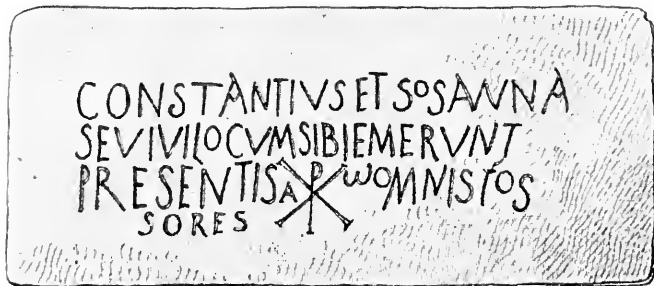 CONSTANTIVS ET SOSANNA
SEVIVI LOCVM SIBI EMERVNT
PRESENTIS A ☧ ω OMNIS FOS
SORES